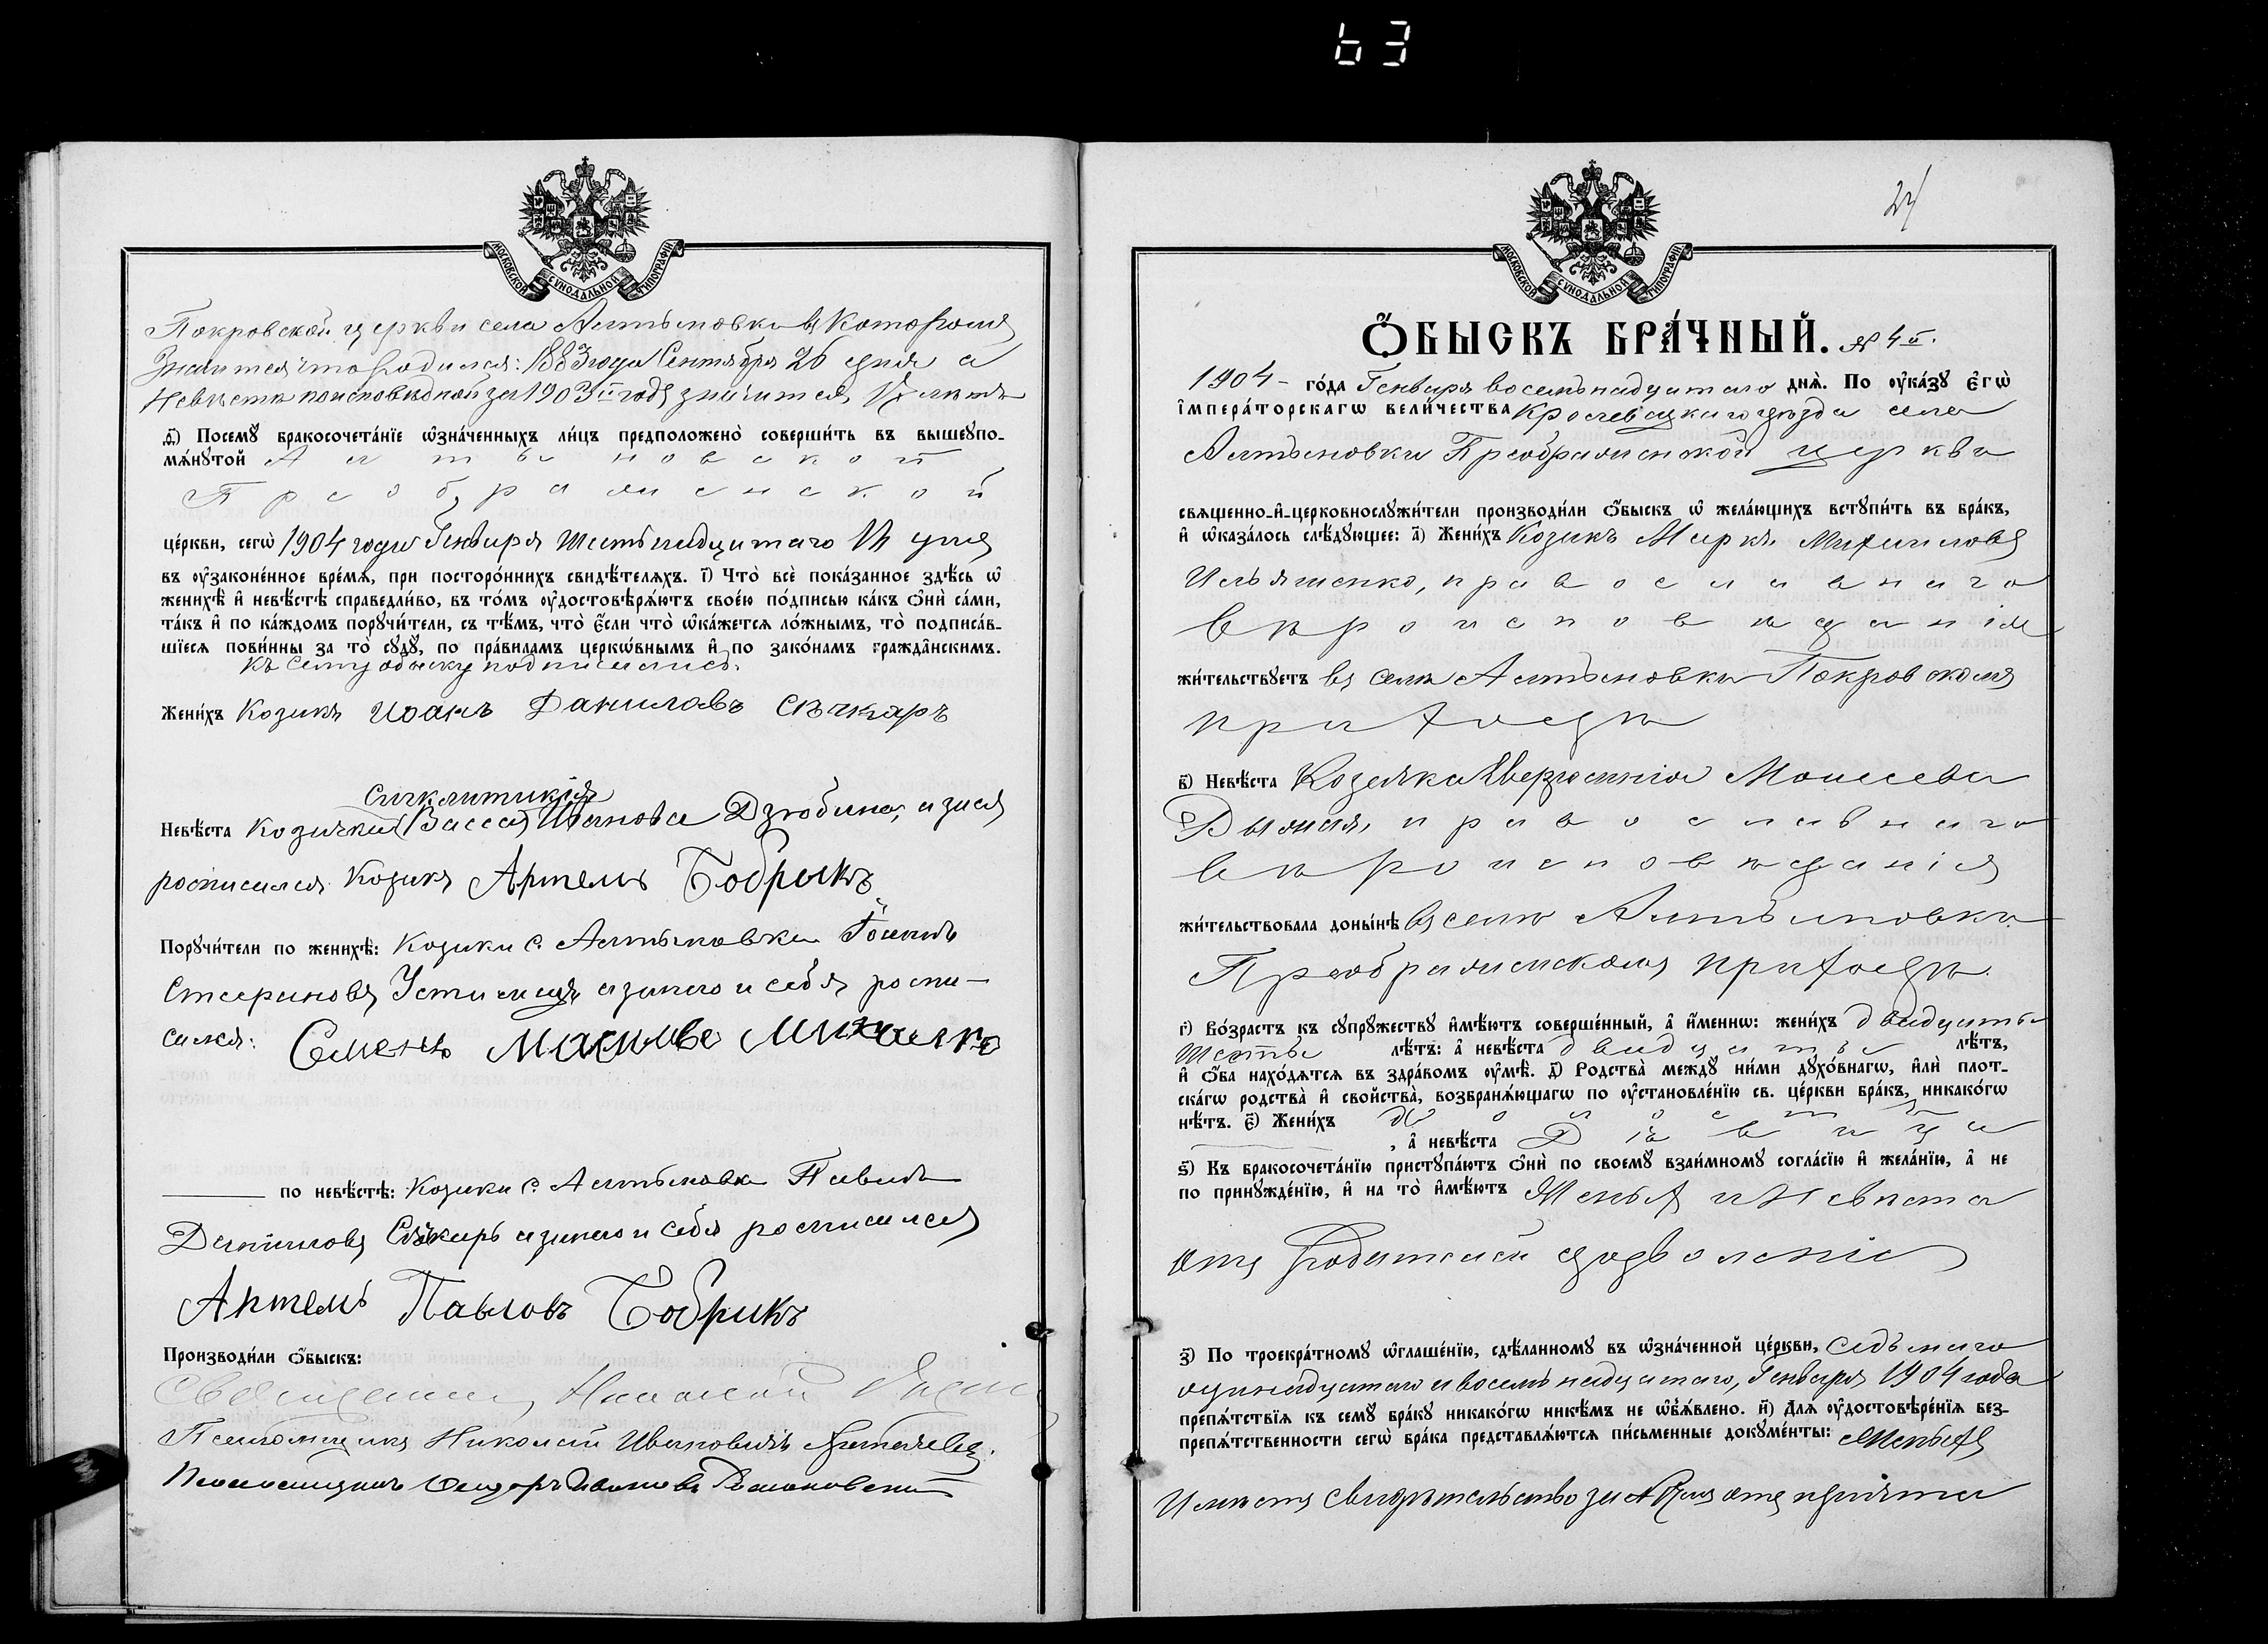 63
МОСКОВСКОЙ СѴНОДАЛЬНОЙ ТИПОГРАФІИ
Покровской церкви села Алтыновки въ которомъ
значится что родился: 1883 года Сентября 26 дня а
Невѣста по исповѣдной за 1903й годъ значится
д҃і) Посемꙋ̀ бракосочета́нїе ѡ҆зна́ченныхъ ли́цъ предположено̀ соверши́ть въ вышеꙋпо-
мѧ́нꙋтой Алтыновской
Преображенской
це́ркви, сегѡ̀ 1904 года Генваря шестьнадцатаго дня
въ ᲂу҆законе́нное вре́мѧ, при посторо́ннихъ свидѣ́телѧхъ. і҃) Что̀ всѐ пока́занное здѣ́сь ѡ҆
женихѣ̀ и҆ невѣ́стѣ справедли́во, въ то́мъ ᲂу҆достовѣрѧ́ютъ свое́ю по́дписью ка́къ ѻ҆нѝ са́ми,
та́къ и҆ по ка́ждомъ порꙋчи́тели, съ тѣ́мъ, что̀ є҆́сли что̀ ѡ҆ка́жетсѧ ло́жнымъ, то̀ подписа́в-
шїесѧ пови́нны за то̀ сꙋдꙋ̀, по пра́виламъ церкѡ́внымъ и҆ по зако́намъ гражда̂нскимъ.
къ сему обыску подписались:
Жени́хъ Козакъ Иоанъ Даниловъ Сѣчкарь
Сигклитикія
Невѣ́ста Козачка (Васса) Иванова Дзюбина, а за ея
росписался Козакъ Артемъ Бобрыкъ
Порꙋчи́тели по женихѣ̀: Козаки с. Алтыновки
Стефановъ а за него и себя роспи-
сался: Семенъ
по невѣ́стѣ: Козаки с. Алтыновки Павелъ
Даниловъ Сѣчкарь а за него и себя росписался
Артемъ Павловъ Бобрикъ
Производи́ли ѻ҆́быскъ:
Священникъ Николай
Псаломщикъ Николай Ивановичъ
Псаломщикъ
24
МОСКОВСКОЙ СѴНОДАЛЬНОЙ ТИПОГРАФІИ
Ѻ҆́БЫСКЪ БРА́ЧНЫЙ. № 4й.
1904 – го́да Генваря восемьнадцатаго днѧ̀. По ᲂу҆ка́зꙋ Є҆гѡ̀
І҆мпера́торскагѡ вели́чества Кролевецкаго уѣзда села
Алтыновки Преображенской церкви
свѧще́нно-и҆-церковнослꙋжи́тели производи́ли ѻ҆́быскъ ѡ҆ жела́ющихъ встꙋпи́ть въ бра́къ,
и҆ ѡ҆каза́лось слѣ́дꙋющее: а҃) Жени́хъ Козакъ Маркъ Михаиловъ
Ильяшенко, православнаго
вѣроисповѣданія
жи́тельствꙋетъ въ селѣ Алтыновкѣ Покровскомъ
приходѣ
в҃) Невѣ́ста Козачка Моисеева
православнаго
вѣроисповѣданія
жи́тельствовала доны́нѣ въ селѣ Алтыновкѣ
Преображенскомъ приходѣ.
г҃) Во́зрастъ къ сꙋпрꙋ́жествꙋ и҆мѣ́ютъ соверше́нный, а҆ и҆́меннѡ: жени́хъ двадцать
шесть лѣ́тъ: а҆ невѣ́ста двадцать лѣ́тъ,
и҆ ѻ҆́ба нахо́дѧтсѧ въ здра́вомъ ᲂу҆мѣ̀. д҃) Родства̀ междꙋ̀ ни́ми дꙋхо́внагѡ, и҆лѝ плот-
ска́гѡ родства̀ и҆ сво́йства̀, возбранѧ́ющагѡ по ᲂу҆становле́нїю св. це́ркви бра́къ, никако́гѡ
нѣ́тъ. є҃) Жени́хъ холостъ
, а҆ невѣ́ста Дѣвица
ѕ҃) Къ бракосочета́нїю пристꙋпа́ютъ ѻ҆нѝ по своемꙋ̀ взаи́мномꙋ согла́сїю и҆ жела́нїю, а҆ не
по принꙋжде́нїю, и҆ на то̀ и҆мѣ́ютъ Женихъ и Невѣста
отъ родителей дозволеніе
з҃) По троекра́тномꙋ ѡ҆глаше́нїю, сдѣ́ланномꙋ въ ѡ҆зна́ченной це́ркви, седьмаго
одинадцатаго и восемьнадцатаго, Генваря 1904 года
препѧ́тствїѧ къ семꙋ̀ бра́кꙋ никако́гѡ никѣ́мъ не ѡ҆б̾ѧ́влено. и҃) Для ᲂу҆достовѣре́нїѧ без-
препѧ́тственности сегѡ̀ бра́ка представлѧ́ютсѧ пи́сьменные докꙋме́нты: Женихъ
имѣетъ свидѣтельство за № отъ принята